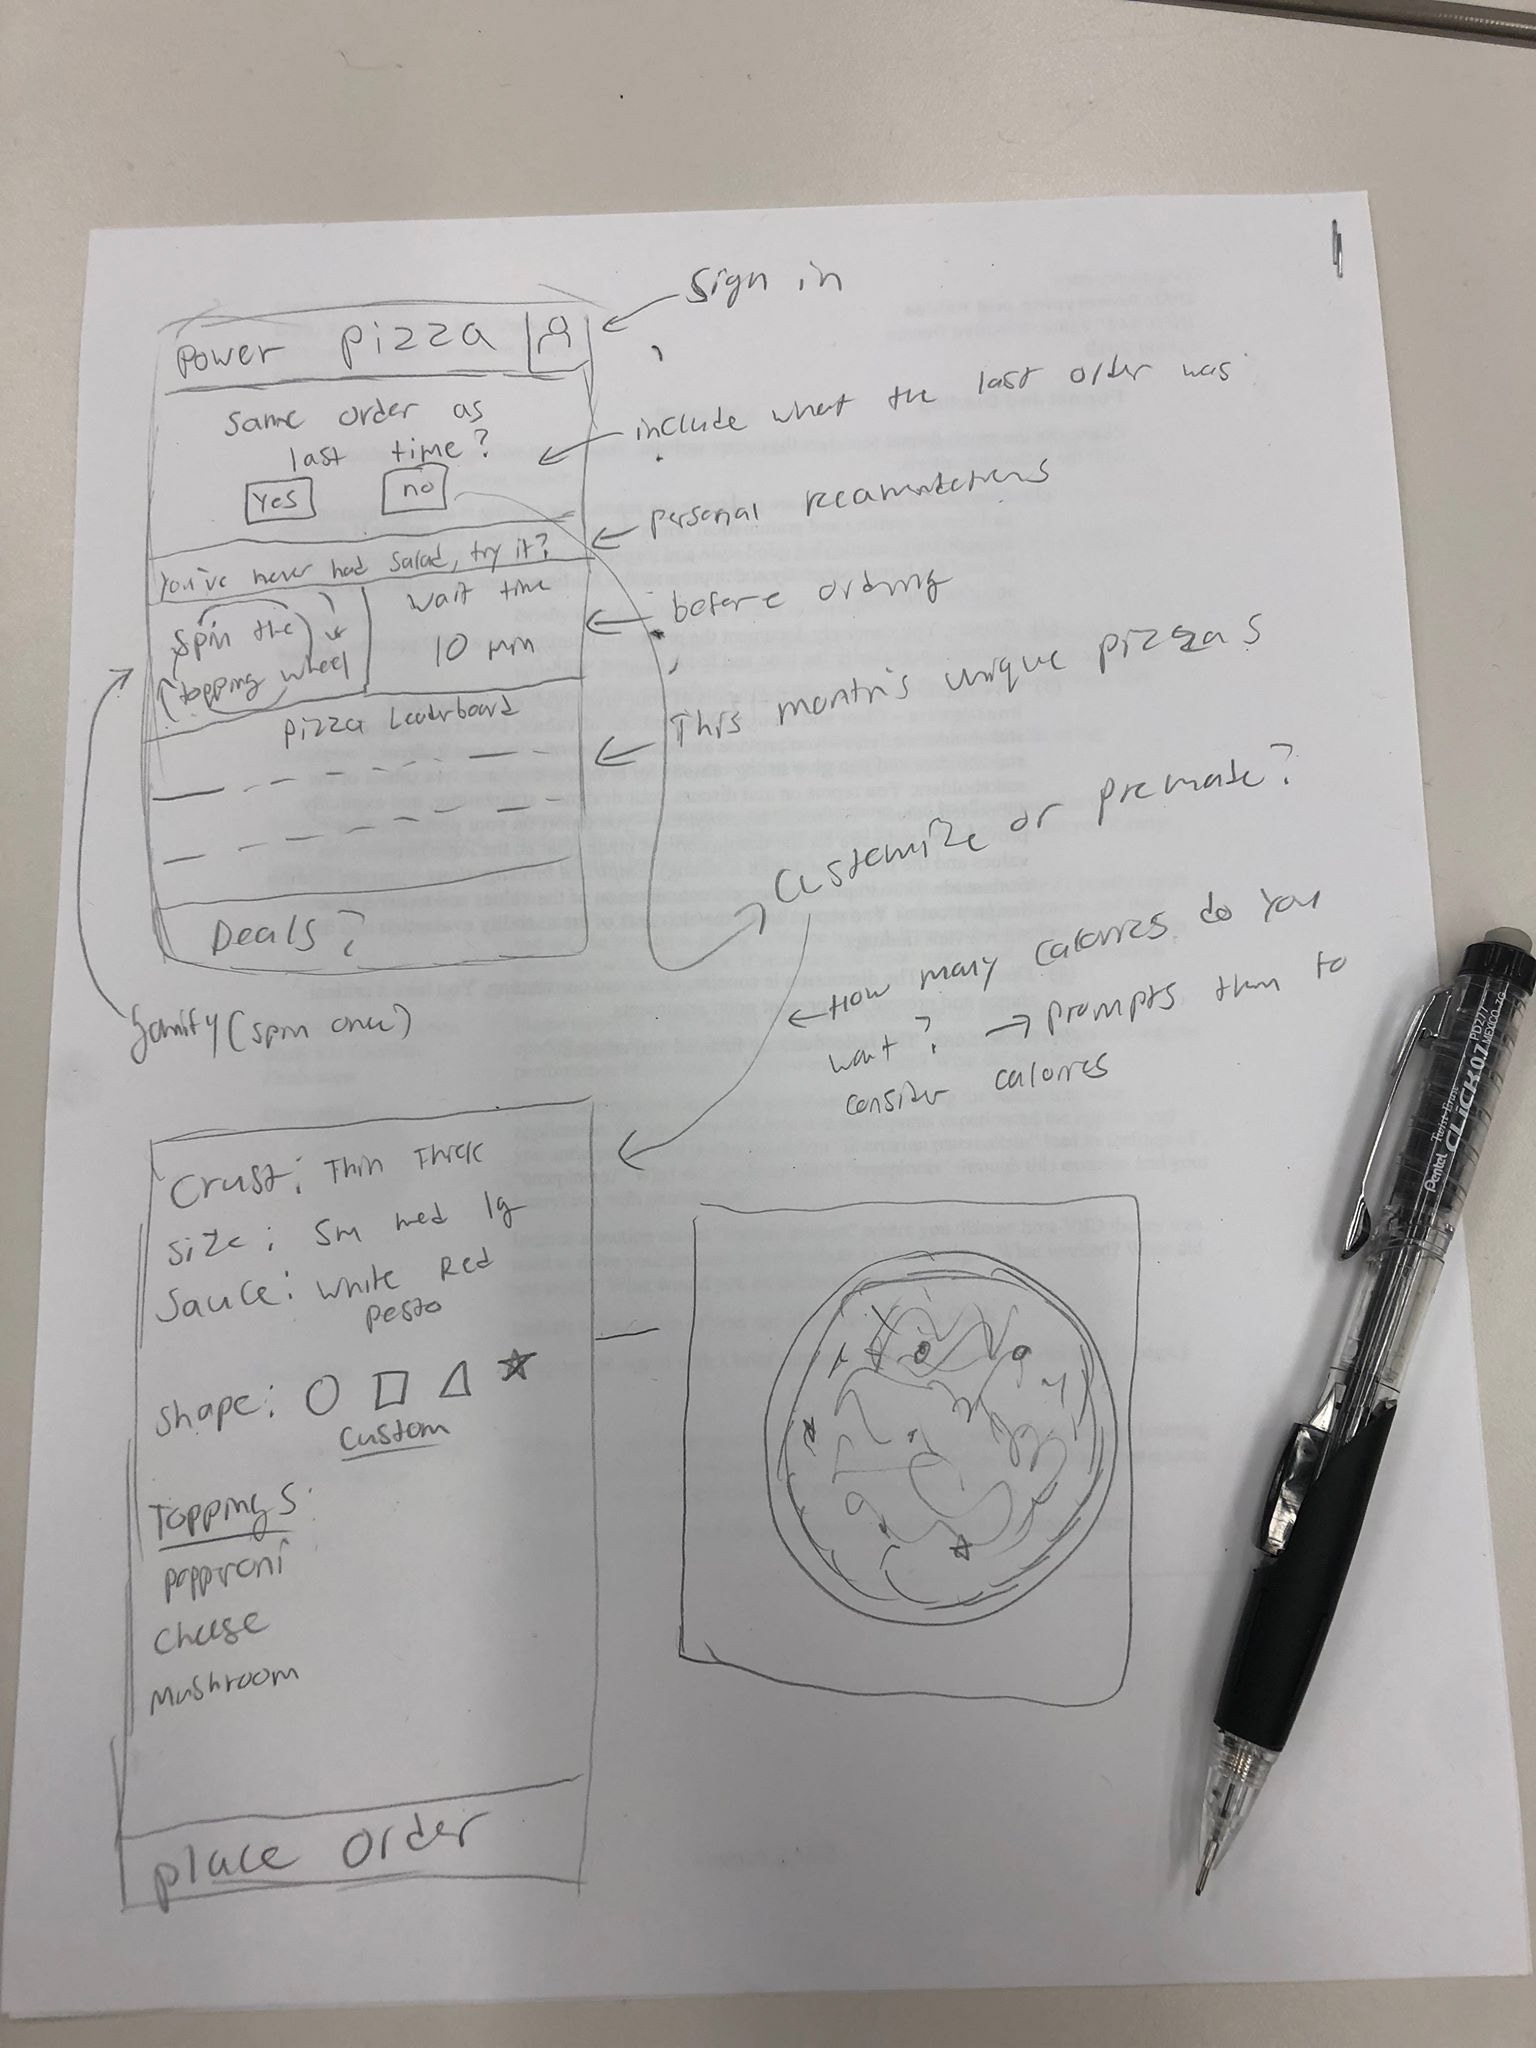 Sign in
Power pizza
Same order as
last time?
Yes no
include what the last order was
You've never had salad, try it?
personal recamentations
Spin the
topping wheel
wait time
10 min
before ordring
Pizza Leaderboard
This month's unique pizzas
Deals?
gamify (spin once)
Customize or premade?
How many calories do you
want? → prompts them to
consider calories
Crust: Thin Thick
Size: Sm med lg
Sauce: White Red
Pesto
Shape:
Custom
Toppings:
Pepproni
Cheese
Mushroom
place order
Pentel Twist-Erase CLiCK 0.7 PD277
MEXICO